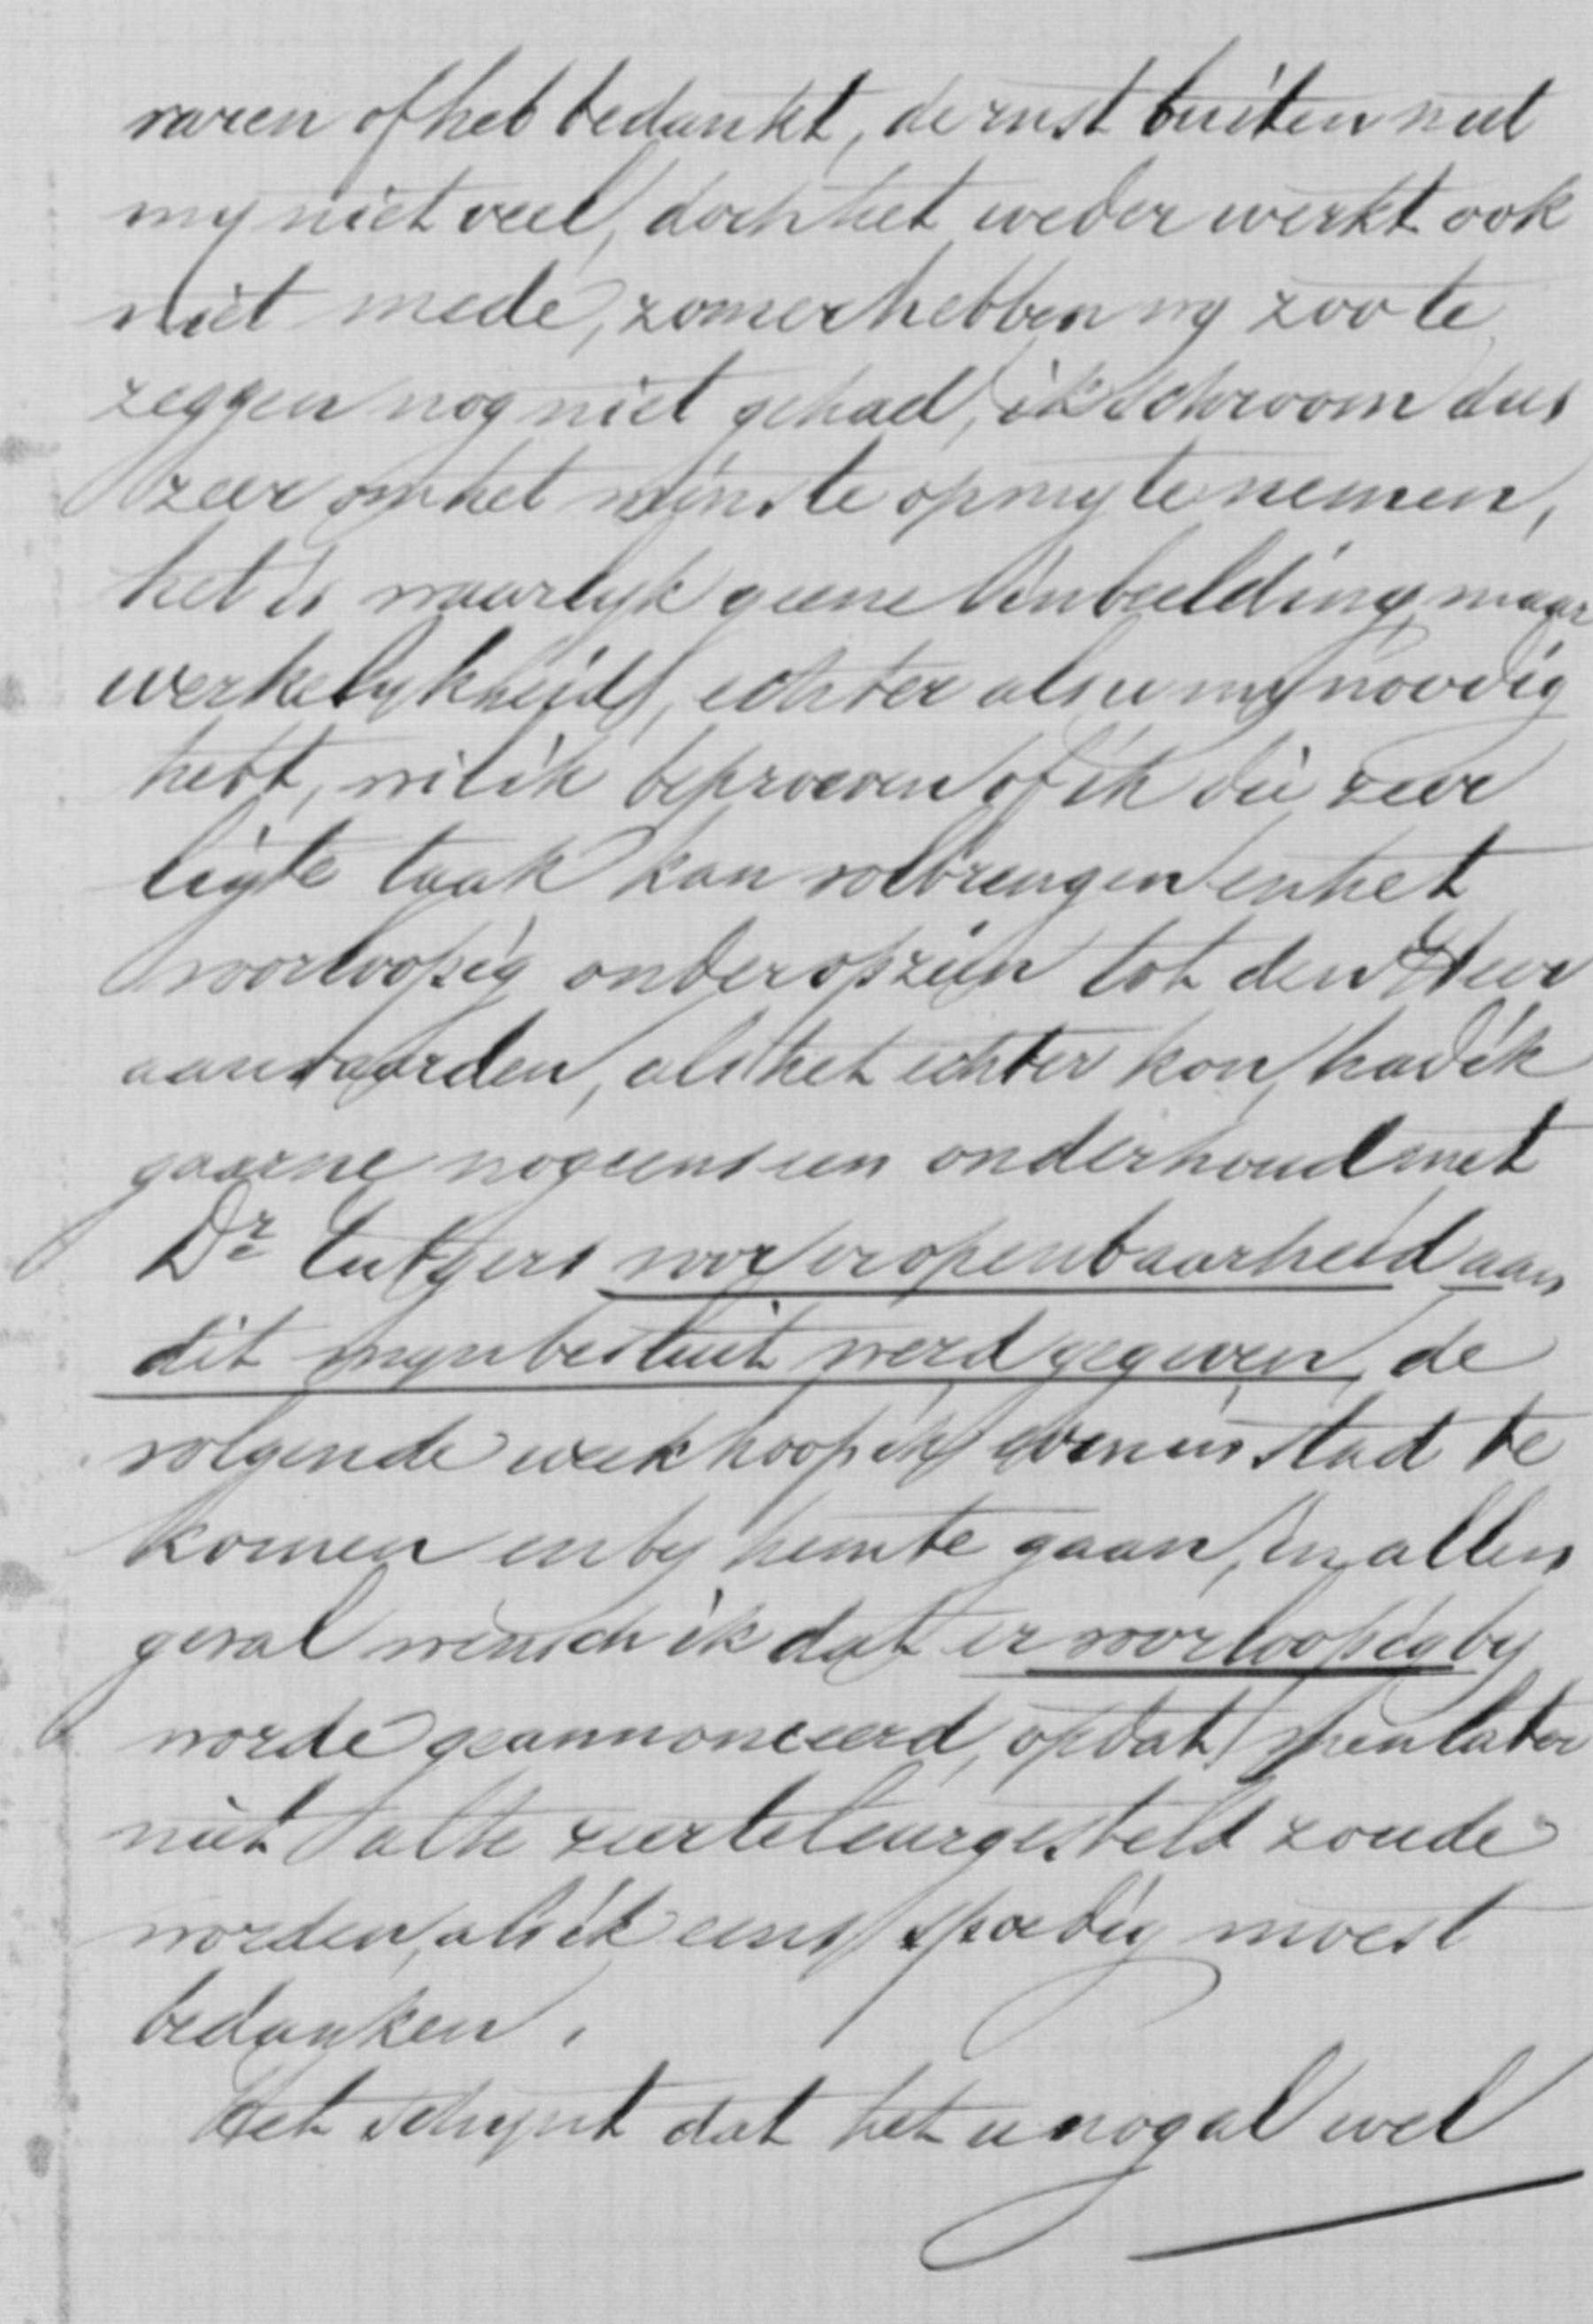 waren of heb bedankt, de rust buiten nut
my niet veel, doch het weder werkt ook
niet mede, zomer hebben wy zoo te
zeggen nog niet gehad, ik schroom dus
zeer om het minste op my te nemen,
het is waarlyk geene inbeelding maar
werkelykheid, echter als u my noodig
hebt, wil ik beproeven of ik die zeer
ligte taak kan volbrengen en het
voorloopig onder opzien tot den Heer
aanvaarden, als het echter kon, had ik
gaarne nog eens een onderhoud met
Dr Rutgers voor er openbaarheid aan
dit myn besluit werd gegeven, de
volgende week hoop ik even in stad te
komen en by hem te gaan, in allen
geval wensch ik dat er voorloopig by
worde geannonceerd, opdat men later
niet al te zeer teleurgesteld zoude
worden, als ik eens spoedig moest
bedanken.
Het schynt dat het u nog al wel